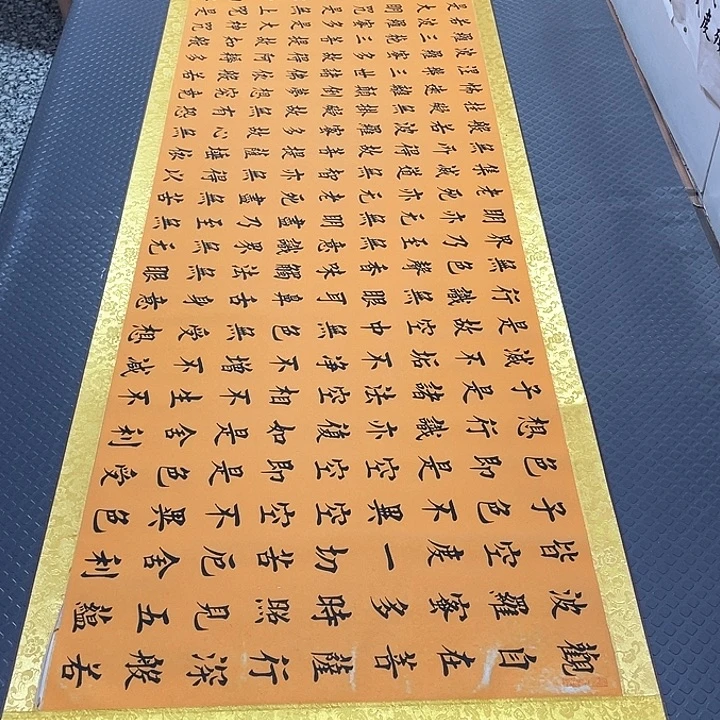 觀自在菩薩行深般若
波羅蜜多時照見五蘊
皆空度一切苦厄舍利
子色不異空空不異色
色即是空空即是色受
想行識亦復如是舍利
子是諸法空相不生不
滅不垢不淨不增不減
是故空中無色無受想
行識無眼耳鼻舌身意
無色聲香味觸法無眼
界乃至無意識界無无
明亦无無明盡乃至無
老死亦无老死盡無苦
集滅道無智亦無得以
無所得故菩提薩埵依
般若波羅蜜多故心無
挂礙無掛礙故無有恐
怖遠離顛倒夢想究竟
涅槃三世諸佛依般若
波羅蜜多故得阿耨多
羅三藐三菩提故知般
若波羅蜜多是大神咒
是大明咒是無上咒是